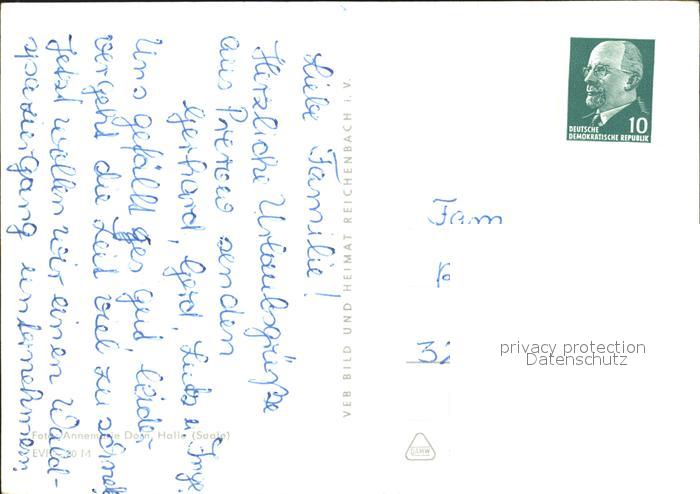 Liebe Familie!
Herzliche Urlaubsgrüße
aus Prerow senden
Gerhard, Gerd, Lutz u. Inge.
Uns gefällt es gut leider
vergeht die Zeit viel zu schnell
Jetzt wollen wir einen Wald-
spaziergang unternehmen.
VEB BILD UND HEIMAT REICHENBACH i. V.
Foto: Annemarie Dorn, Halle (Saale)
DEUTSCHE
DEMOKRATISCHE REPUBLIK
10
Fam
32
privacy protection
Datenschutz